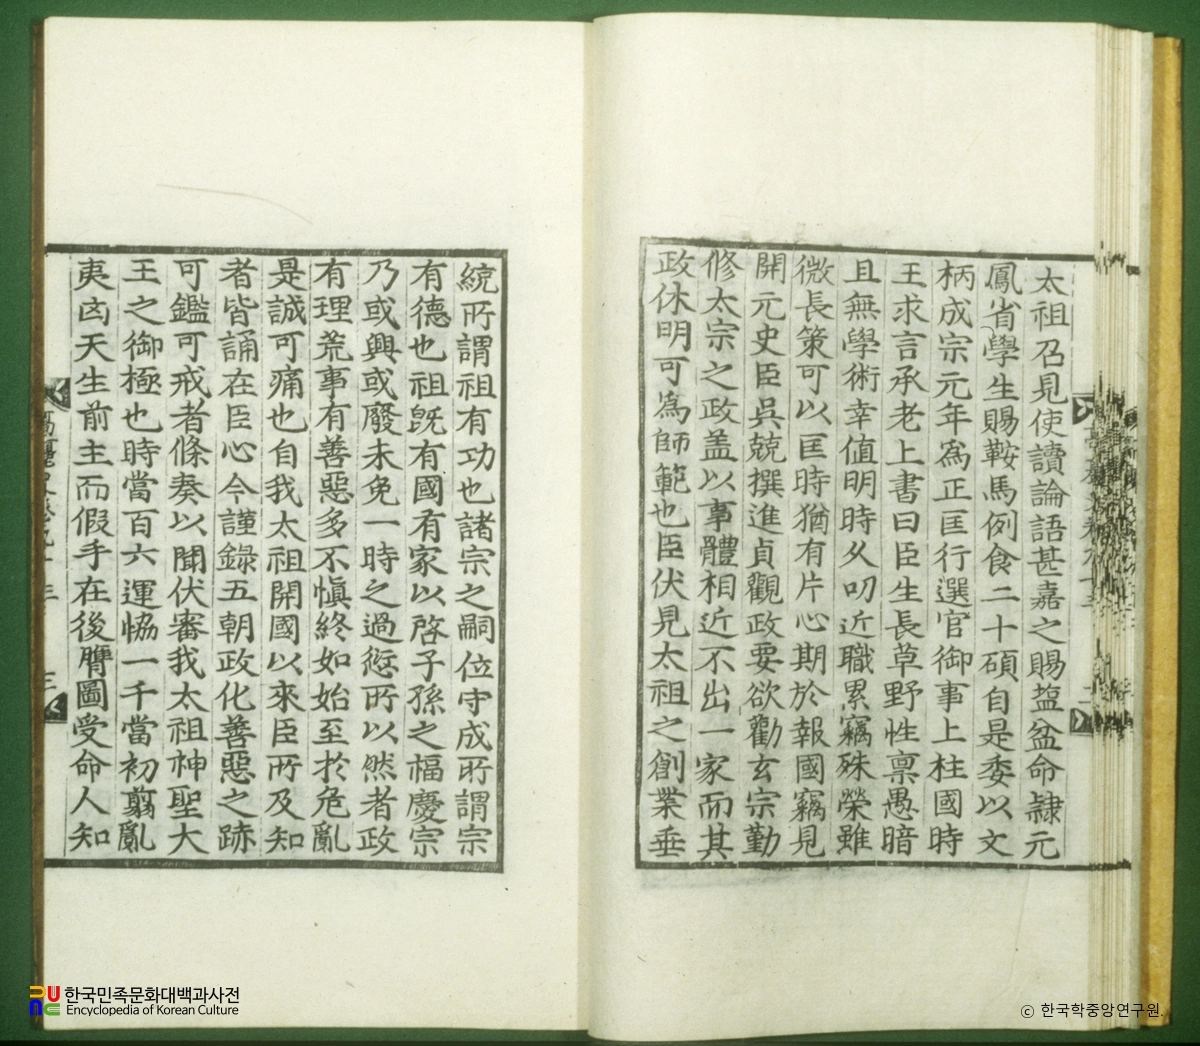 太祖召見使讀論語甚嘉之賜塩盆命隷元
鳳省學生賜鞍馬例食二十碩自是委以文
柄成宗元年爲正匡行選官御事上柱國時
王求言承老上書曰臣生長草野性禀愚暗
且無學術幸值明時久叨近職累竊殊榮雖
微長策可以匡時猶有片心期於報國竊見
開元史臣吳兢撰進貞觀政要欲勸玄宗勤
修太宗之政盖以事體相近不出一家而其
政休明可爲師範也臣伏見太祖之創業垂
統所謂祖有功也諸宗之嗣位守成所謂宗
有德也祖旣有國有家以啓子孫之福慶宗
乃或興或廢未免一時之過愆所以然者政
有理荒事有善惡多不愼終如始至於危亂
是誠可痛也自我太祖開國以來臣所及知
者皆誦在臣心今謹錄五朝政化善惡之跡
可鑑可戒者條奏以聞伏審我太祖神聖大
王之御極也時當百六運恊一千當初翦亂
夷凶天生前主而假手在後膺圖受命人知
三
한국민족문화대백과사전
Encyclopedia of Korean Culture
© 한국학중앙연구원.